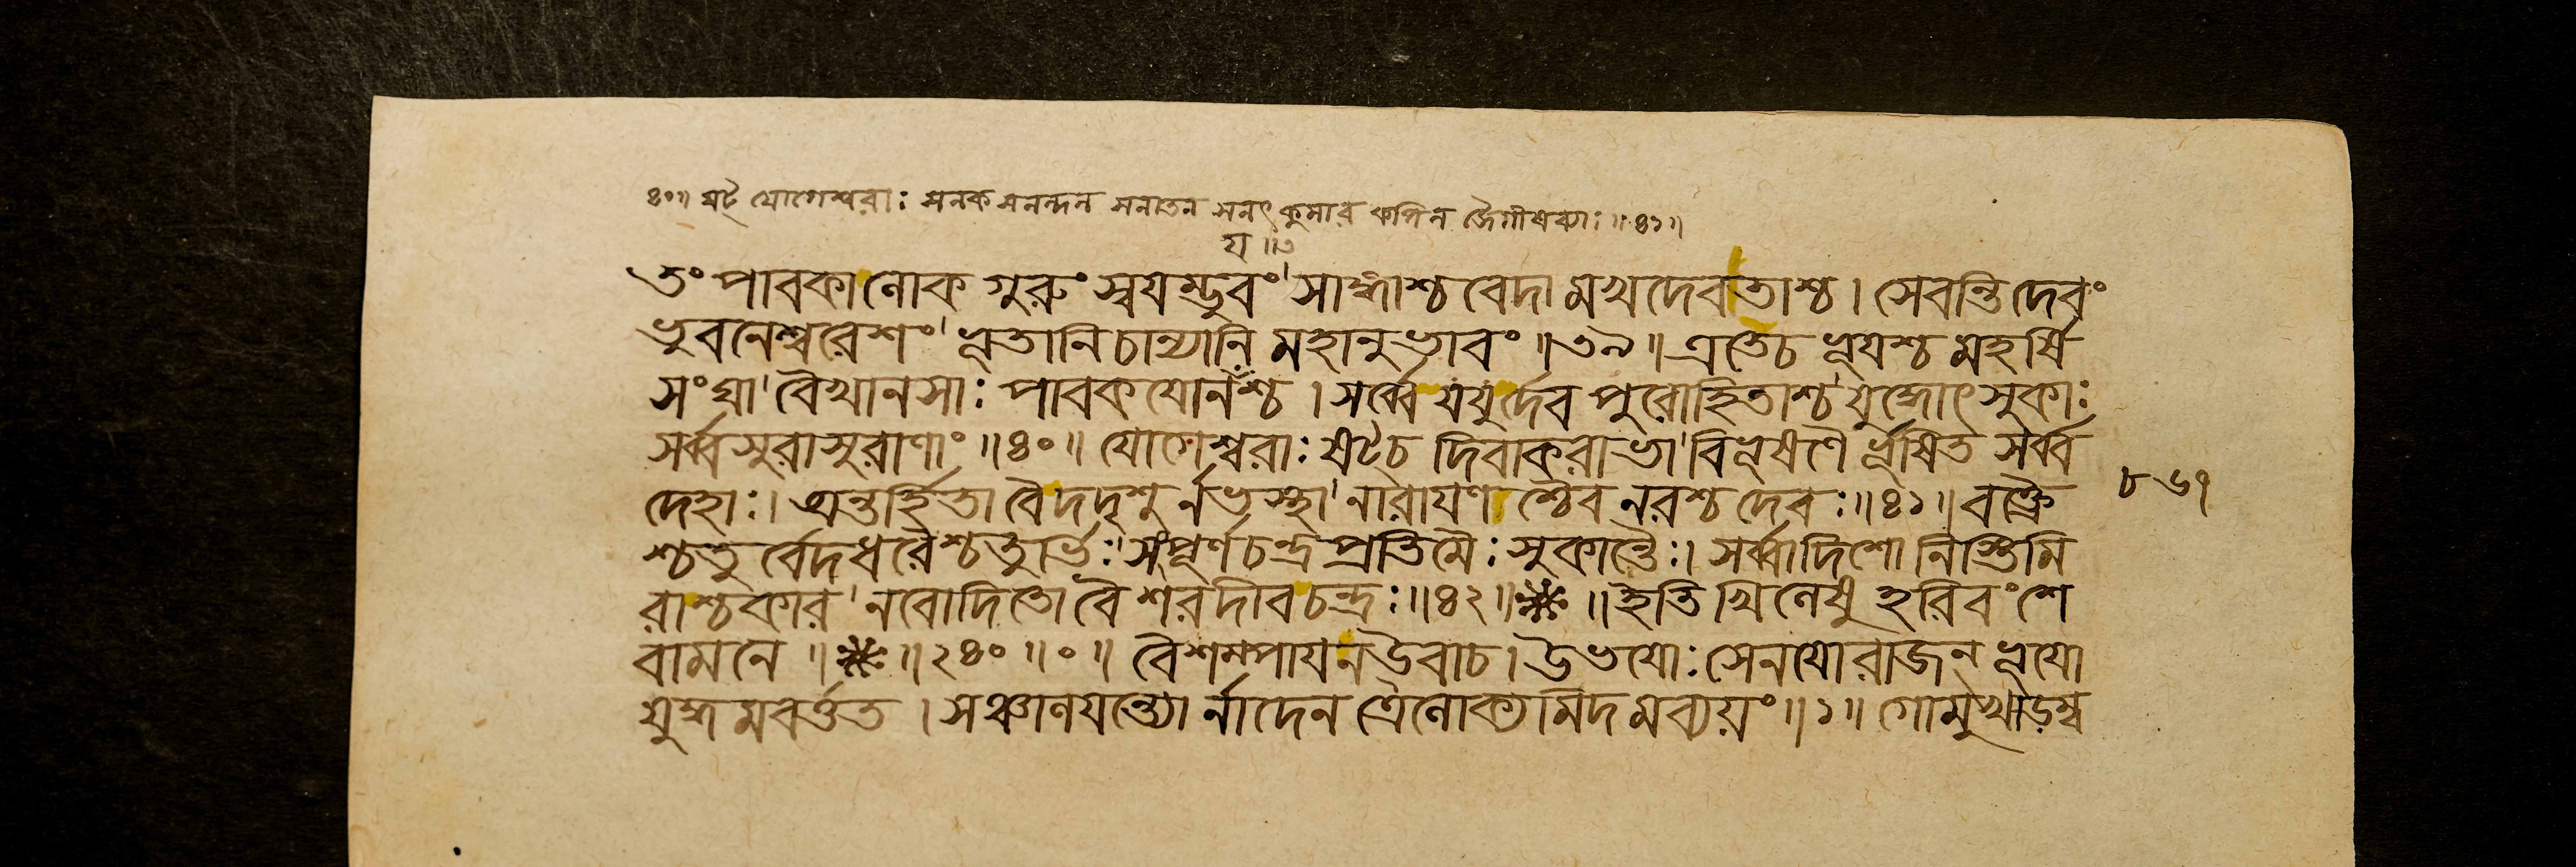 ৪০॥ ষট্ যোগেশ্বরাঃ সনক সনন্দন সনাতন সনৎকুমার কপিল জৈগীষব্যাঃ ॥৪১॥
য ॥৩
তং পাবকালোক গুরুং স্বযম্ভুবং' সাঙ্গাশ্চ বেদা মখদেবতাশ্চ । সেবন্তি দেবং
ভুবনেশ্বরেশং' ভূতানি চান্যানি মহানুভাবং ॥৩৯॥ এতেচ ভূযশ্চ মহর্ষি
সংঘা' বৈখানসাঃ পাবকযোনযশ্চ । সর্ব্বে যযুর্দেব পুরোহিতাশ্চ' যুদ্ধোৎসুকাঃ
সর্ব্বসুরাসুরাণাং ॥৪০॥ যোগেশ্বরাঃ ষট্চ দিবাকরাভা' বিভূষণৈ র্ভূষিত সর্ব্ব
দেহাঃ । অন্তর্হিতা বৈ দদৃশু র্নভস্থা' নারাযণ শ্চৈব নরশ্চ দেবঃ ॥৪১॥ বক্ত্রৈ
শ্চতু র্বেদধরৈশ্চতুর্ভিঃ' সংপূর্ণচন্দ্র প্রতিমৈঃ সুকান্তৈঃ । সর্ব্বাদিশো নিস্তিমি
রাশ্চকার' নবোদিতো বৈ শরদীবচন্দ্রঃ ॥৪২॥ ॥ ইতি খিলেষু হরিবংশে
বামনে ॥ ॥২৪০॥০॥ বৈশম্পাযন উবাচ । উভযোঃ সেনযো রাজন্ ভূযো
যুদ্ধ মবর্ত্তত । সঞ্চালযন্ত্যো র্নাদেন ত্রৈলোক্যমিদ মব্যয়ং ॥১॥ গোমুখাড়ম্ব
৮৬৭